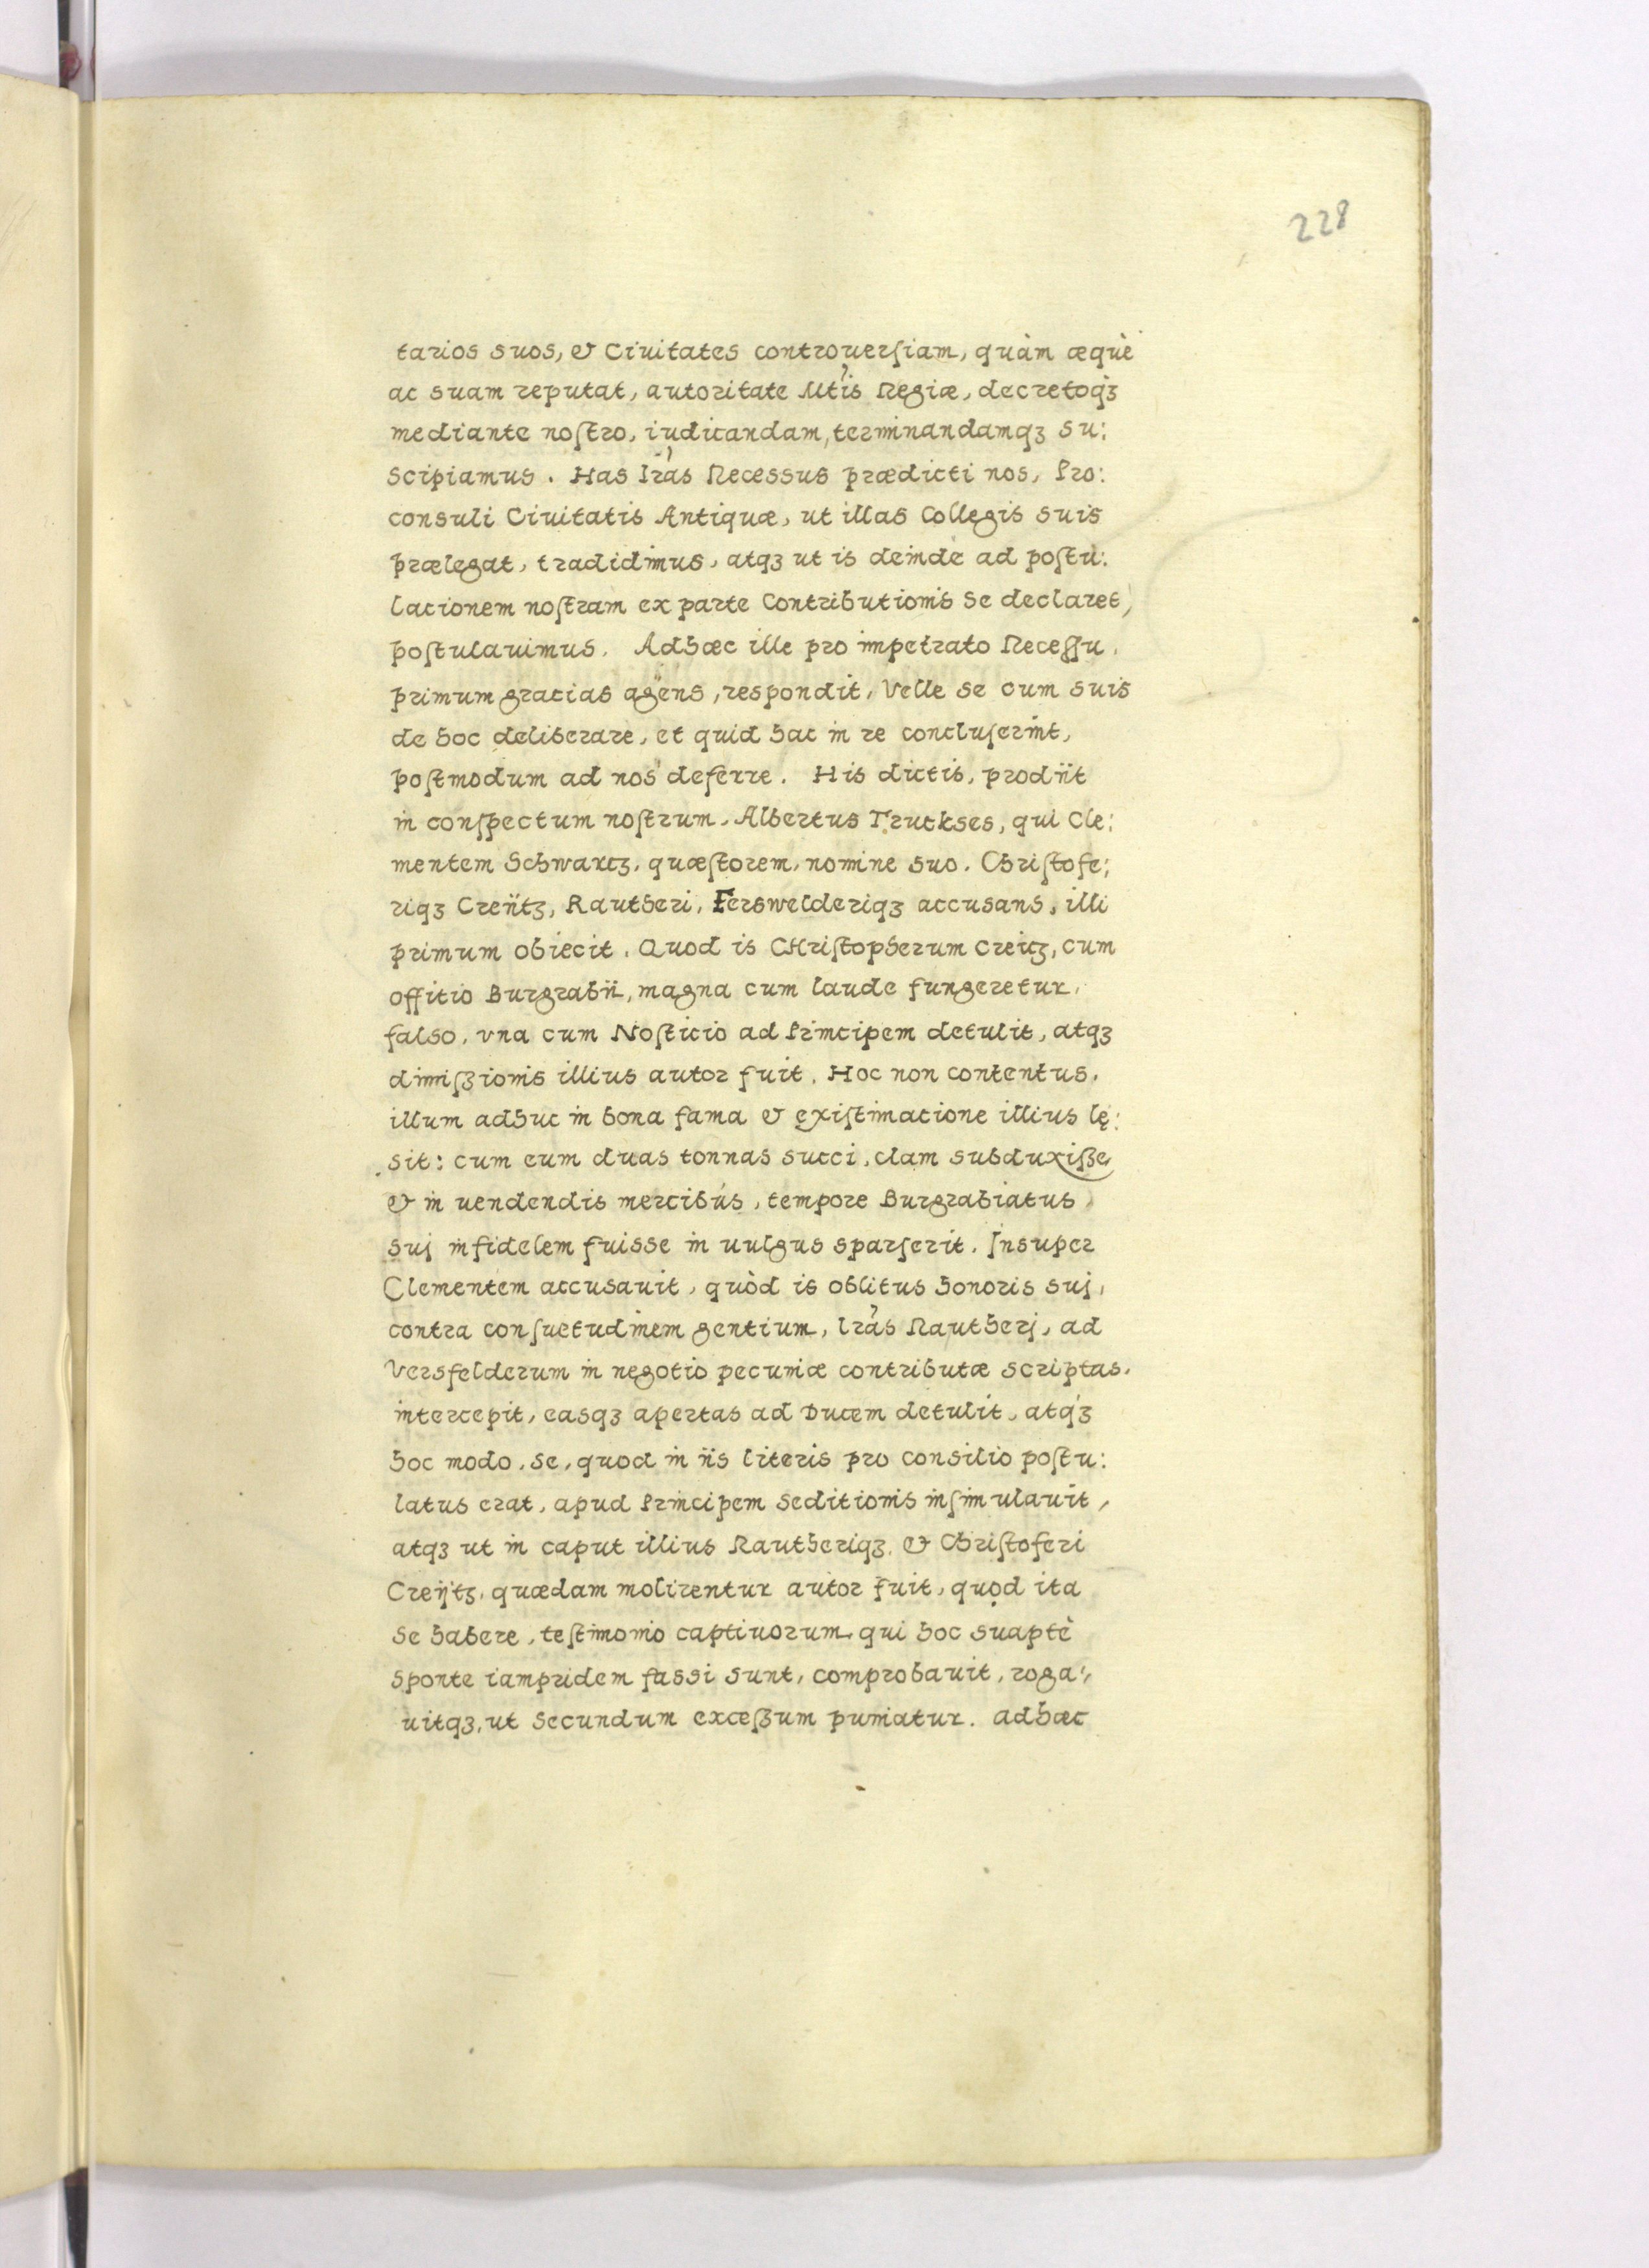 228
tarios suos, & Ciuitates controuerſiam, quàm æquè
ac suam reputat, autoritate Mtis Regiæ, decretoqꝫ
mediante noſtro, iudicandam, terminandamqꝫ su:
scipiamus. Has lr̃as Recessus prædicti nos, Pro:
consuli Ciuitatis Antiquæ, ut illas Collegis suis
prælegat, tradidimus, atqꝫ ut is deindè ad poſtu:
lacionem noſtram ex parte Contributionis se declaret,
poſtulauimus. Adhæc ille pro impetrato Receſſu,
primum gracias agens, respondit, Velle se cum suis
de hoc deliberare, et quid hac in re concluſerint,
poſtmodum ad nos deferre. His dictis, prodiit
in conſpectum noſtrum, Albertus Truckses, qui Cle:
mentem Schwartz, quæſtorem, nomine suo, Chriſtofe:
riqꝫ Creÿtz, Rautheri, Ferswelderiqꝫ accusans, illi
primum obiecit, Quod is CHriſtopherum Creitz, cum
offitio Burgrabii, magna cum laude fungeretur,
falso, vna cum Noſticio ad Principem detulit, atqꝫ
dimiſʒionis illius autor fuit. Hoc non contentus,
illum adhuc in bona fama & exiſtimacione illius lę:
sit: cum eum duas tonnas succi, clam subduxiſʒe
& in uendendis mercibus, tempore Burgrabiatus
suj infidelem fuisse in uulgus sparſerit. Insuper
Clementem accusauit, quòd is oblitus honoris suj,
contra conſuetudinem gentium, lr̃as Rautherj, ad
Versfelderum in negotio pecuniæ contributæ scriptas,
intercepit, easqꝫ apertas ad Ducem detulit, atqꝫ
hoc modo, se, quod in iis literis pro consilio poſtu:
latus erat, apud Principem seditionis inſimulauit,
atqꝫ ut in caput illius Rautheriqꝫ, & Chriſtoferi
Creÿtz, quædam molirentur autor fuit, quod ita
se habere, teſtimonio captiuorum, qui hoc suaptè
sponte iampridem fassi sunt, comprobauit, roga:
uitqꝫ, ut secundum exceſʒum puniatur. adhæc